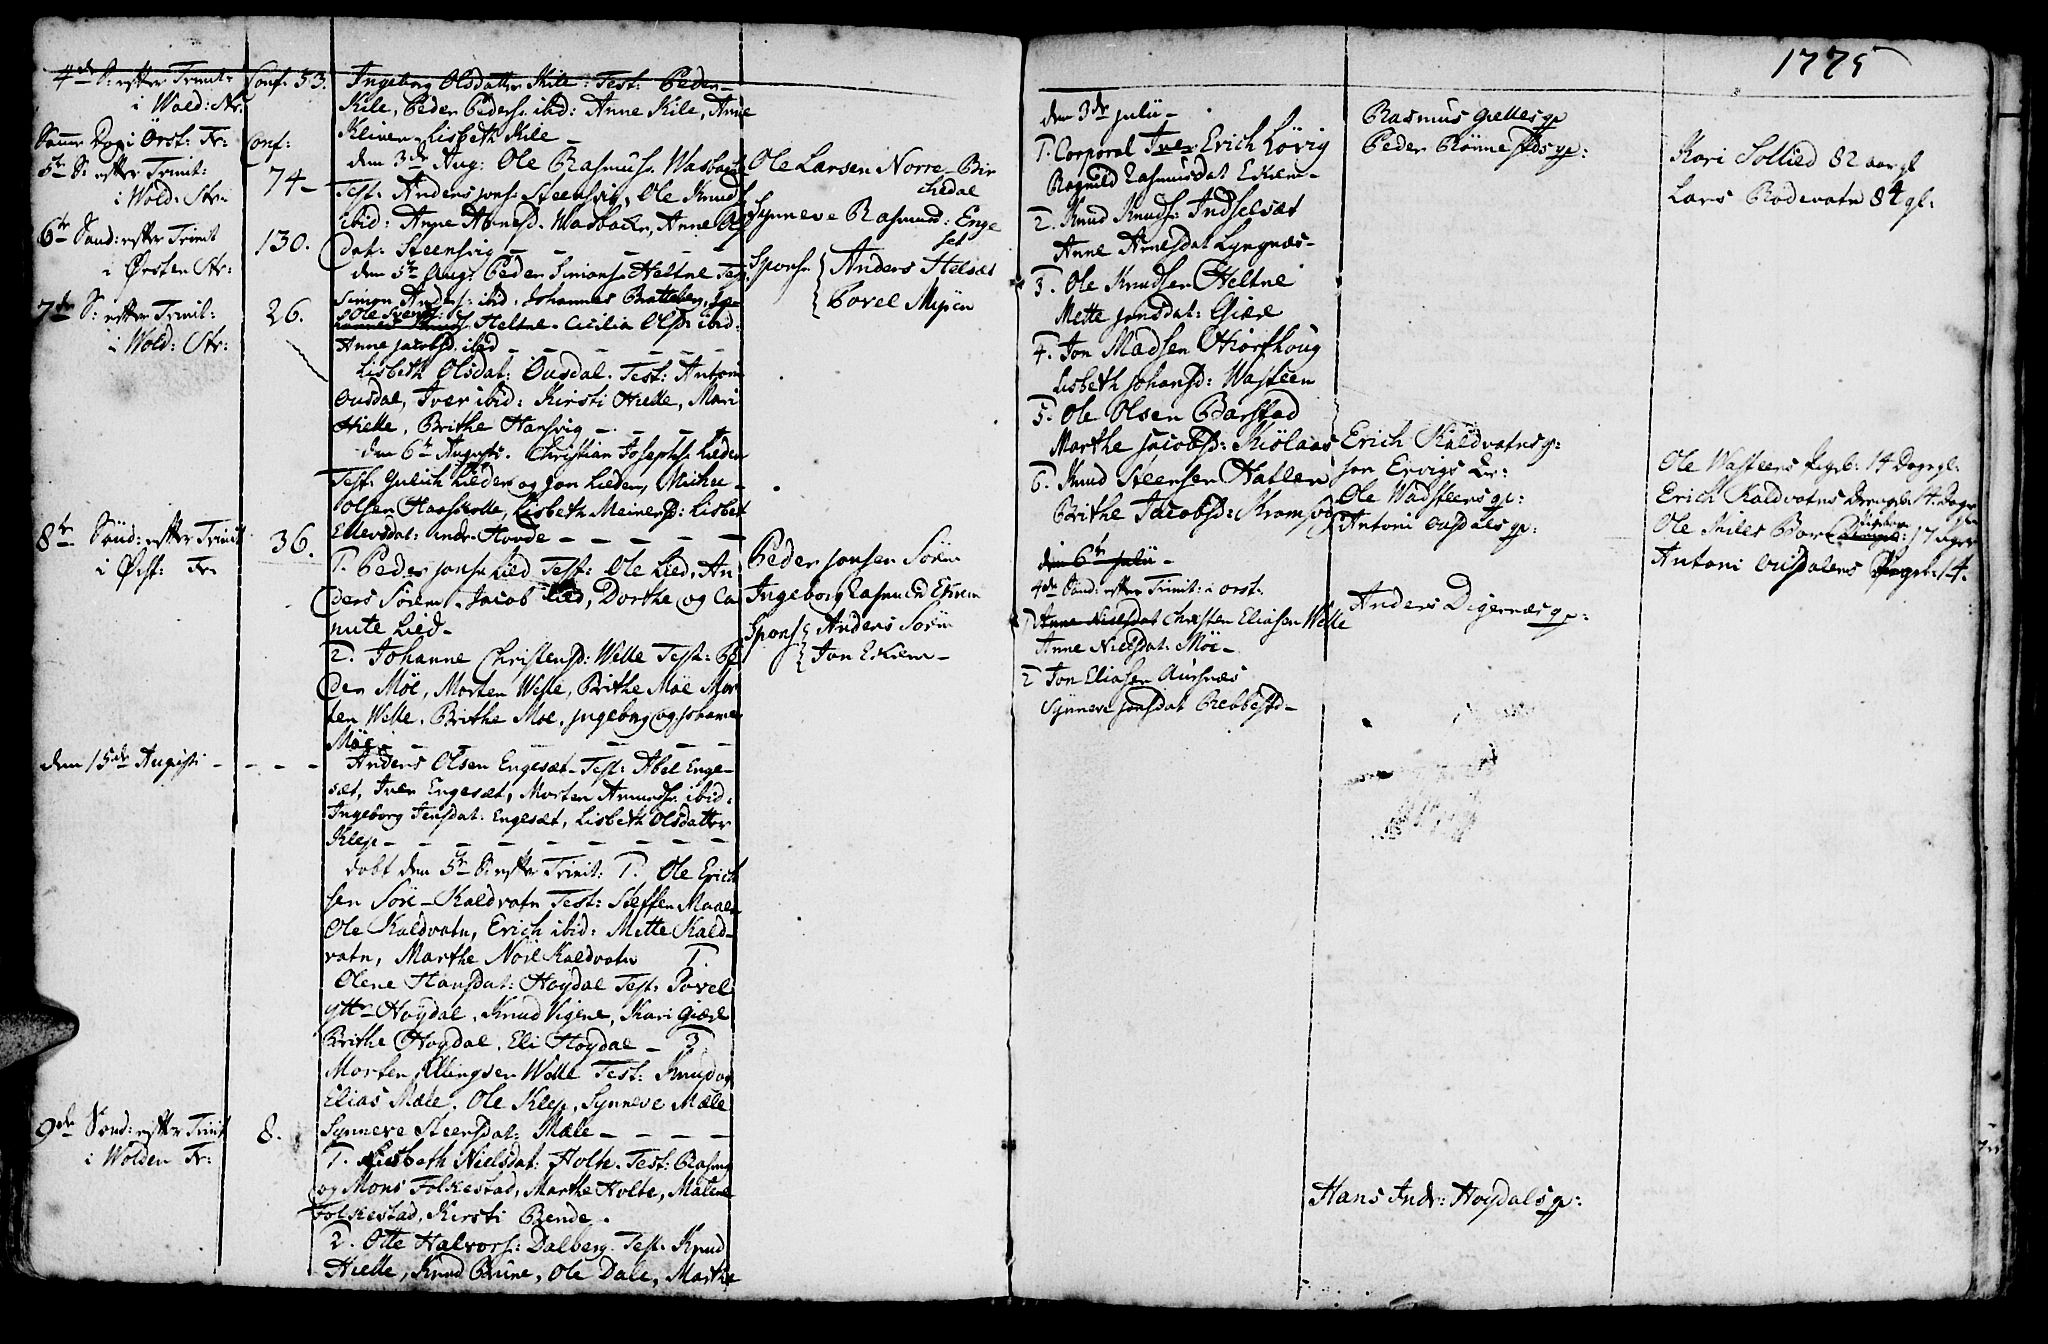 4de S: efter Trinit:
i Wold: Kr:
Samme Dag i Örst: Kr:
5te S: efter Trinit:
i Wold: Kr:
6te Sönd: efter Trinit
i Örsten Kr:
7de S: efter Trinit:
i Wold: Kr:
8te Sönd: efter Trinit
i Örst: Kr
dem 15de Augusti - - - -
9de Sönd: efter Trinit
i Wolden Kr:
Conf: 53.
Conf:
74 -
130.
26.
36.
8.
Ingeborg Olsdatter Kile: Test: Peder
Kile, Peder Peders: ibid: Anne Kile, Anne
Kleiven, Lisbeth Kile -
dem 3de Aug: Ole Rasmus: Wasbach
Test: Anders Jons: Steensvig, Ole Knuds
ibid: Anne Arnesd. Wasbach, Anne Ols
dat: Steensvig - - - -
dem 5te Aug: Peder Simons: Heltne Test:
Simon Anders: ibid, Johannes Bratteberg,
Ole Svends:
Heltne. Cicilia Olsd: ibid:
Anne Jacobsd: ibid - - - -
Lisbeth Olsdat: Ousdal. Test: Antoni
Ousdal, Iver ibid: Kirsti Hielle, Mari
Hielle, Brithe Hansvig - - -
dem 6te Augusti. Christian Josephs: Lieden
Test: Gulich Lieden og Jon Lieden, Michel
Olsen Haaskolle, Lisbeth Meinertsd: Lisbet
Ellevsdat: Indr. Hovde - - - -
1. Peder Jons: Lied Test: Ole Lied, An
ders Sörem, Jacob Lied, Dorthe og Ca
nute Lied -
2. Johanne Christensd: Welle Test: Pe
der Möe, Morten Welle, Brithe Möe Mor
ten Welle. Brithe Moe, Ingeborg og Johanne
Möe - - - - - -
Anders Olsen Engesæt - Test: Abel Enge-
sæt, Iver Engesæt, Morten Amunds: ibid:
Ingeborg Jensdat: Engesæt, Lisbeth Olsdatter
Klep - - - - - - -
döbt dem 5te S: efter Trinit: 1. Ole Erich
sen Söre-Kaldvatn Test: Steffen Maale
Ole Kaldvatn, Erich ibid: Mette Kald-
vatn, Marthe Nöre Kaldvatn 2.
Olene Hansdat: Hoydal Test: Povel
ytt- Hoydal, Knud Vigene, Kari Giære
Brithe Hoydal, Eli Hoydal - 3
Morten Ellingsen Welle Test: Knud og
Elias Mæle. Ole Klep, Synneve Mæle
Synneve Steensdat: Mæle - - - -
1. Lisbeth Nielsdat: Holte. Test: Rasmus
og Mons Folkestad, Marthe Holte, Malene
Folkestad, Kirsti Brende.
2. Otte Halvors: Dalberg. Test: Knud
Hielle, Knud Brune, Ole Dale, Marthe
Ole Larsen Norre-Bir
chedal
Synneve Rasmusd: Enge
set
Spons: { Anders Helsæt
{ Povel Myren
Peder Jonsen Sörem
Ingeborg Rasmusd Ekrem
Spons: { Anders Sörem
{ Jon Ekrem -
dem 3de Julii -
1. Corporal Iver Erich Lövig
Ragnild Rasmusdat Ekrem -
2. Knud Knuds: Indselsæt
Anne Arnesdat Lyngnæs -
3. Ole Knudsen Heltne
Mette Jonsdat: Giære
4. Jon Madsen Hiorthoug
Lisbeth Johansd: Wasteen
5. Ole Olsen Barstad
Marthe Jacobsd: Kiölaas
6. Knud Steensen Hatlen
Brithe Jacobsd: Kramsvo
dem 6te Julii -
4de Sönd: efter Trinit: i Örst:
1 Anne Nielsdat Christen Eliasen Welle
Anne Nielsdat: Möe -
2 Jon Eliasen Aursnæs
Synneve Jonsdat Rebbestd -
Rasmus Gielles qv
Peder Rönnestds qv:
Erich Kaldvatns qv:
Jon Ervigs Qv:
Ole Wadsteens qv:
Antoni Ousdals qv:
Anders Digernæs qv:
Hans Indr: Hoydals qv:
1775
Kari Sollied 82 aar gl
Lars Rodevatn 84 gl:
Ole Wasteens Pigeb: 14 Dage gl:
Erich Kaldvatns Drengeb: 14 Dage
Ole Kiles Barn Pigeb: 17 Dage
Antoni Ousdalens Pigeb: 14.